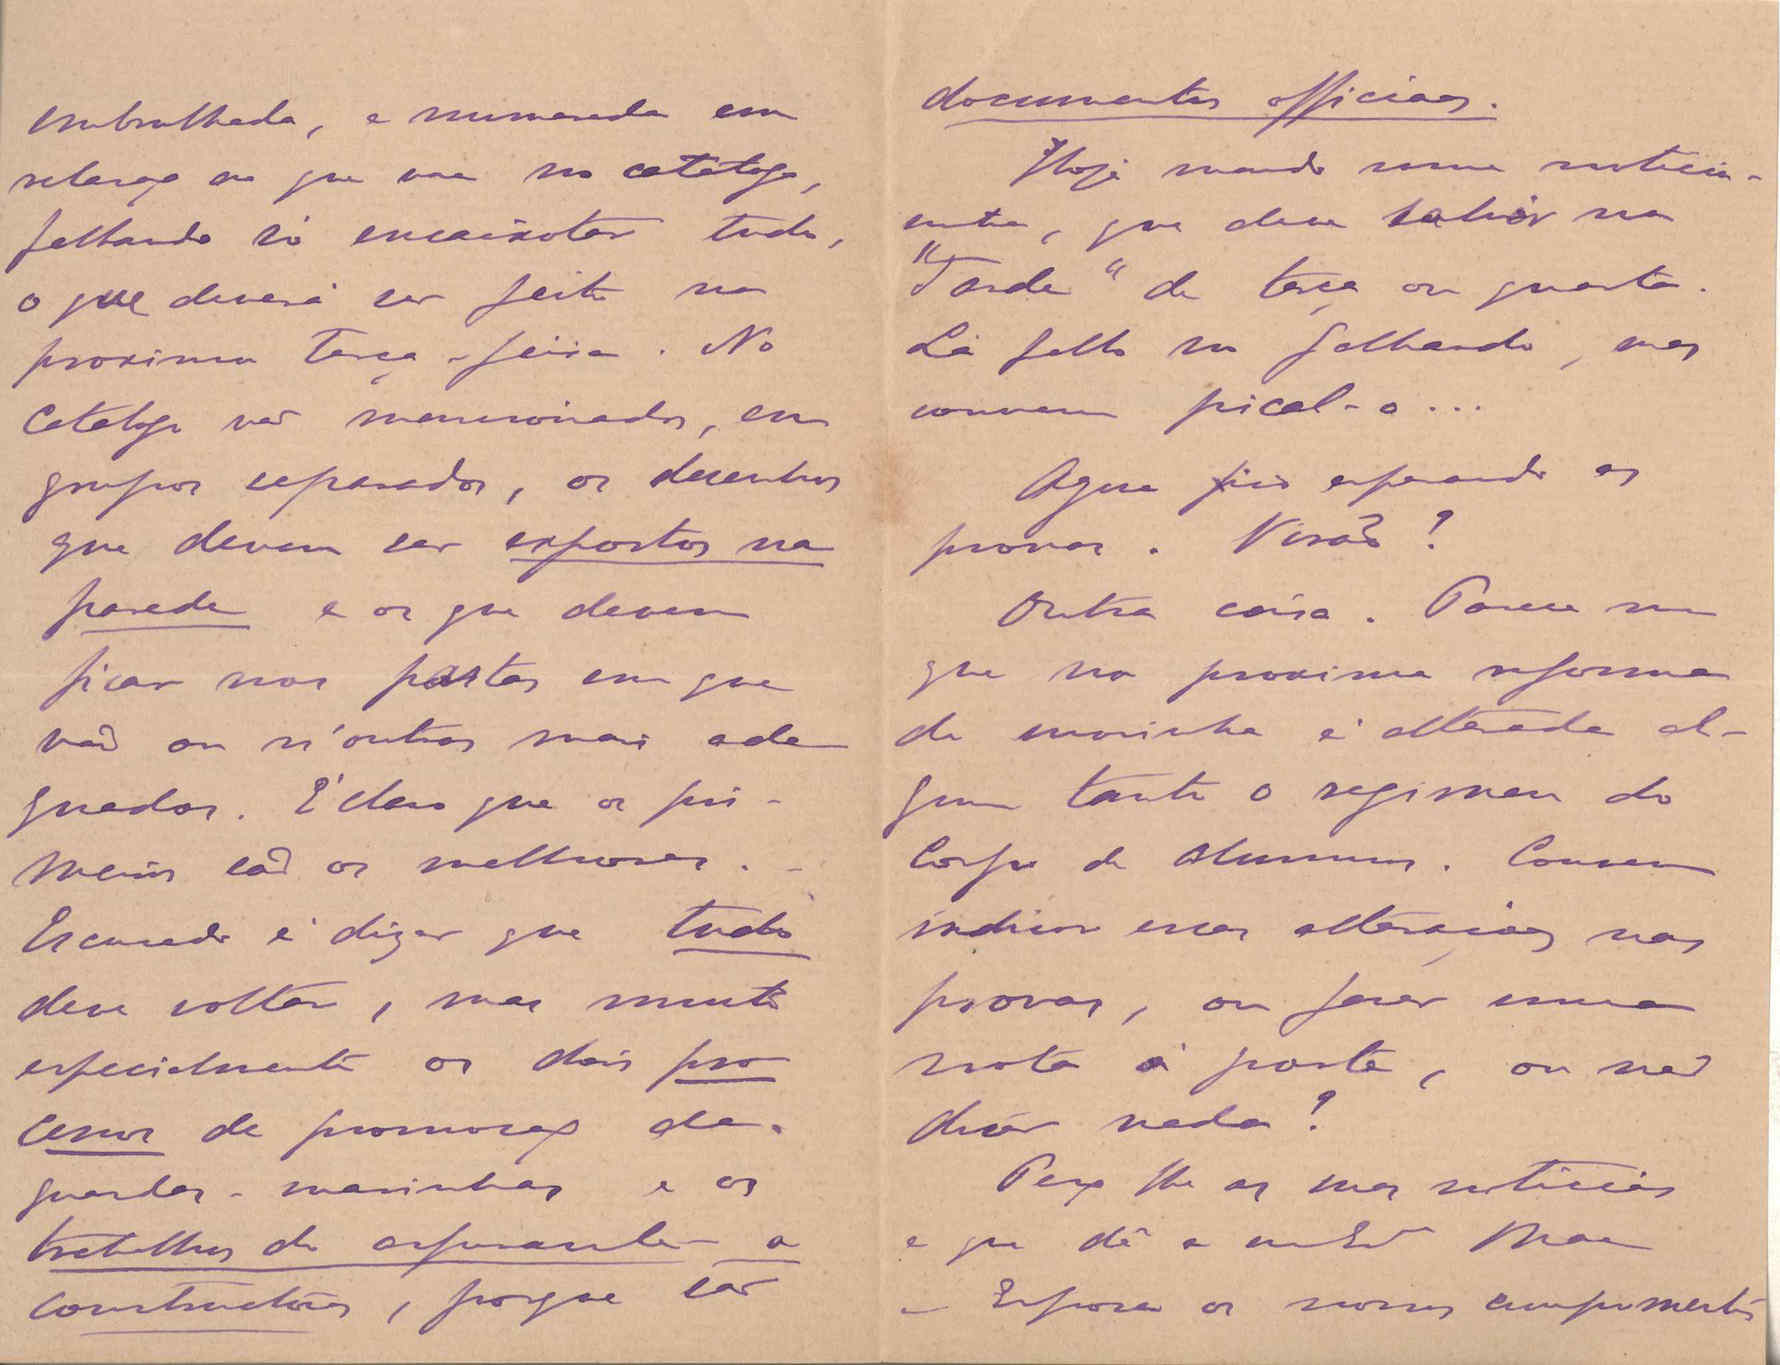 embrulhada, e numerada em
relação ao que vae no catalogo,
faltando só encaixotar tudo,
o que deverá ser feito na
proxima terça-feira. No
Catalogo vão mencionados, em
grupos separados, os desenhos
que devem ser expostos na
parede e os que devem
ficar nas pastas em que
vão ou n'outras mais ade
quadas. É claro que os pri-
meiros são os melhores. -
Escusado é dizer que tudo
deve voltar, mas muito
especialmente os dois pro
cessos de promoção de
guardas-marinhas e os
trabalhos de aspirantes a
constructores, porque são
documentos officiaes.
Hoje mando uma noticia-
sinha, que deve sahir na
"Tarde" de terça ou quarta.
Lá fallo no Falhando, mas
convem pical-o...
Agora fico esperando as
provas. Virão?
Outra coisa. Parece me
que na proxima reforma
da marinha é alterado al-
gum tanto o regimen do
Corpo de Alumnos. Convem
indicar essas alterações nas
provas, ou fazer uma
nota á parte, ou não
dizer nada?
Peço lhe as suas noticias
e que dê a Mãe
e Esposa os nossos cumprimentos